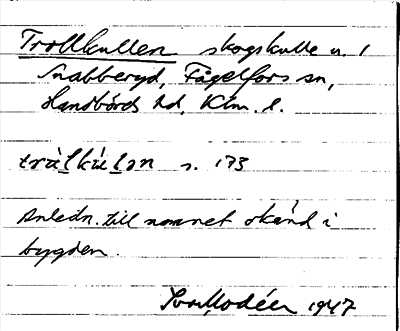 Trollkullen skogskulle u. 1
Snabberyd, Fågelfors sn,
Handbörds hd, Klm. l.
tràlkúlən s. 173
Anledn. till namnet okänd i
bygden.
Ivar Modéer 1947